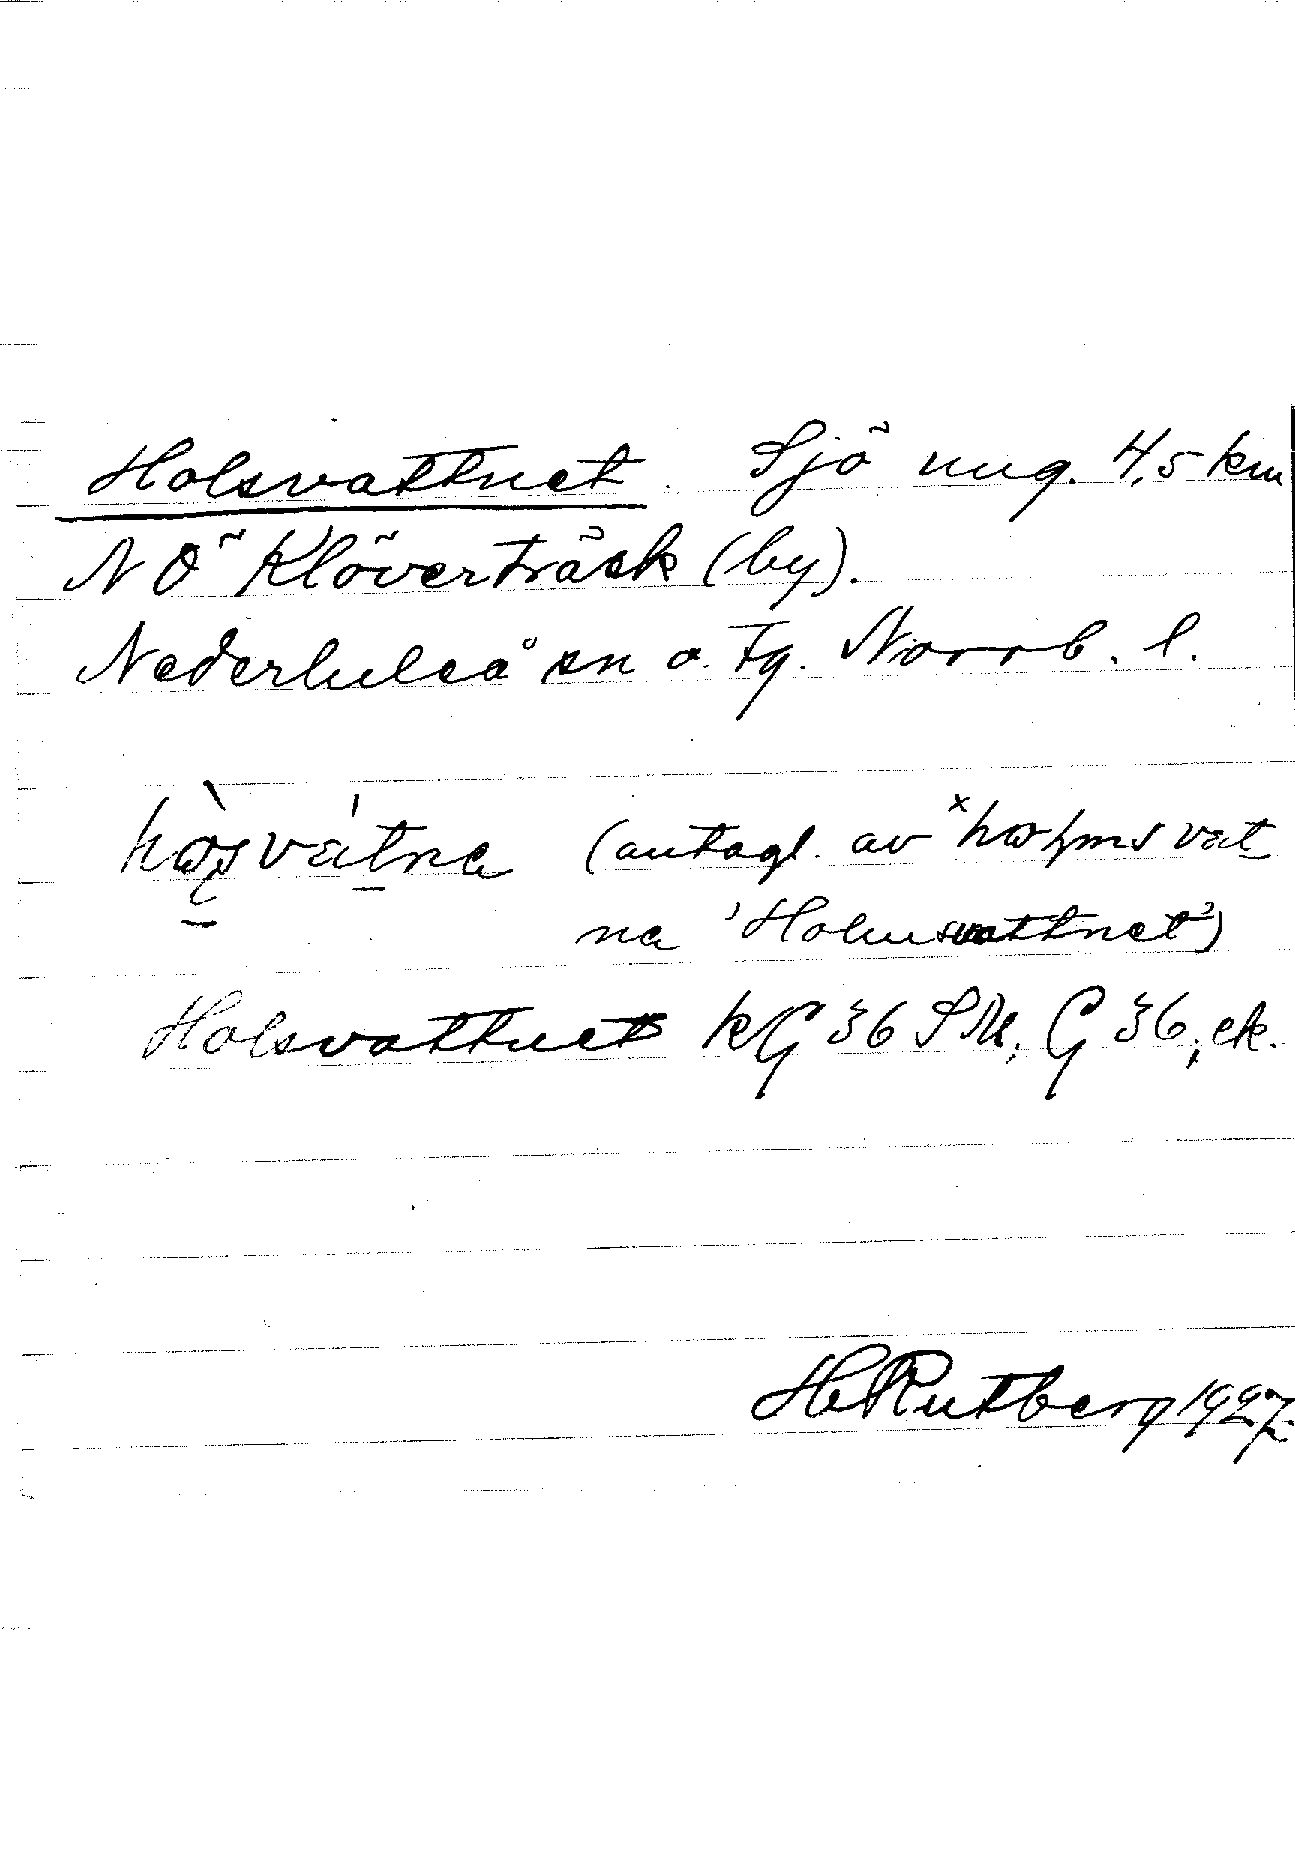 Holsvattnet. Sjö ung. 4,5 km
NÖ Klöverträsk (by).
Nederluleå sn o. tg. Norrb. l.
(antagl. av
'Holmsvattnet')
Holsvattnet kG 36 SM, G 36, ek.
H Rutberg 1927.